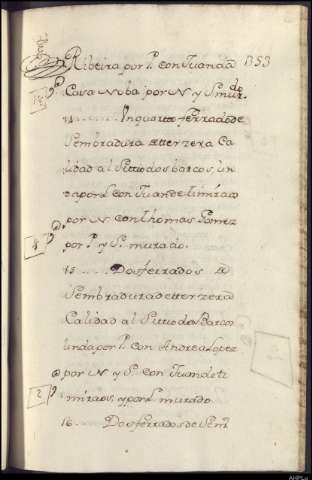 Ribeira por P. con Juan da 1353
Casa Noba por N y S mur.do
14 Un quarto ferrado de
Sembradura de terzera Ca
lidad al Sitio dos barcos, un
da por L con Juan de
por N con thomas Gomez
por P y S. murado.
15 Dos ferrados
Sembradura de terzera
Calidad al Sitio do Barco
unda por P. con Andrea Lopez
por N y S. con Juan de ti
y por L murado
16 Dos ferrados de Sem